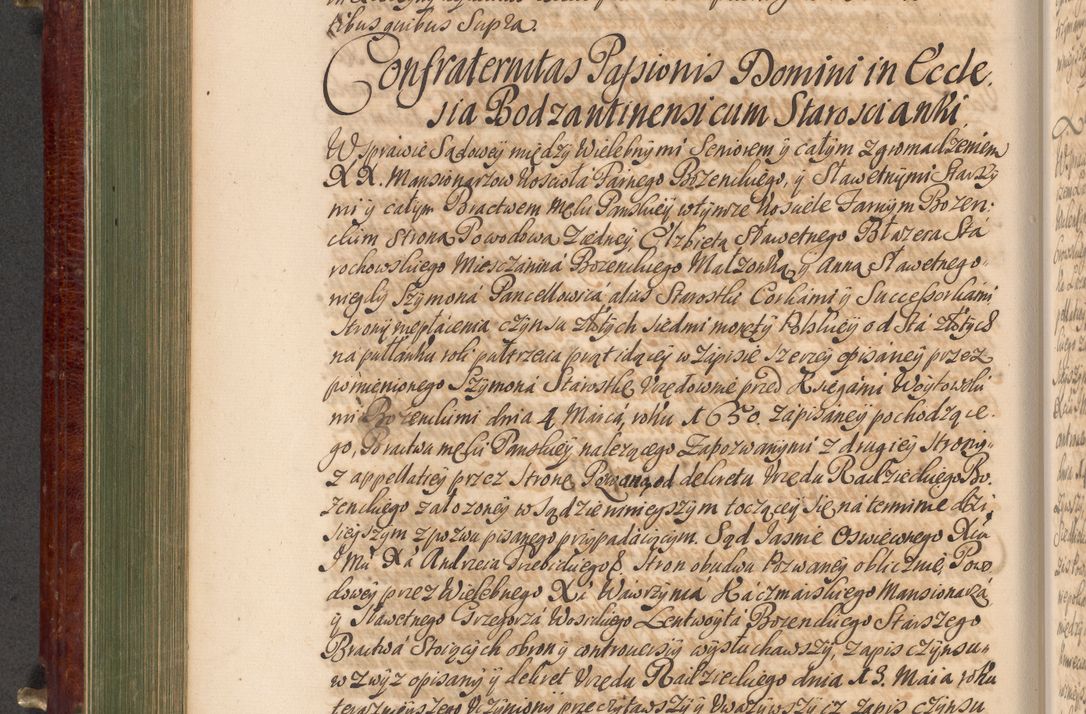 tibus quibus Supra.
Confraternitas Passionis Domini in Eccle,
sia Bodzantinensi cum Staroscianki.
W sprawie Sądowey między Wielebnymi Seniorem y całym zgromadzeniem
XX. Mansionarzow Kościoła Farnego Bozenckiego, y Sławetnymi Starszy
mi y całym Bractwem Męki Pańskiey w tymże Kościele Farnym Bozen:
ckim Stroną Powodową Z iedney Elzbietą Sławetnego Błazeia Stá
rochowskiego Miesczaniná Bozenckiego Małzonką, y Anną Sławetnego
niegdy Szymoná Pancellowicá aliás Starostki Corkámi y Successorkámi
strony niepłácenia czynszu złotych siedmi monety Polskiey od Stá złotych
na pułłanku roli pułtrzecia prąt idącey w Zapisie szerzey opisáney przez
pomienionego Szymoná Starostkę Urzędownie przed Księgámi Woytowski
mi Bozenckimi dnia 4 Marca, roku 1650. zapisáney pochodzące,
go, Bractwu męki Pańskiey nalezącego Zapozwanymi z drugiey strony
z appellatiey przez stronę Pozwaną od dekretu Urzędu Radzieckiego Bo,
zenckiego założoney w Sądzie ninieyszym toczącey się, na terminie dzi,
sieyszym z pozwu pisanego przypadaiącym. Sąd Jasnie Oswieconego Xcia
JMci Xá Andrzeia Trzebickiego &. Stron obudwu Pozwaney oblicznie, Powo
dowey przez Wielebnego Xá Wawrzyná Kaczmarskiego Mansionarzá
y Sławetnego Grzegorzá Lentwoytá Bozenckiego Starszego
Bractwá Stoiących obrony controversiy wysłuchawszy, zapis czynszu
w zwyz opisany y dekret Urzędu Radzieckiego dnia 13. Maia roku
teraznieyszego Uczyniony przeczytawszy y Uwazywszy iz zapis czynszu